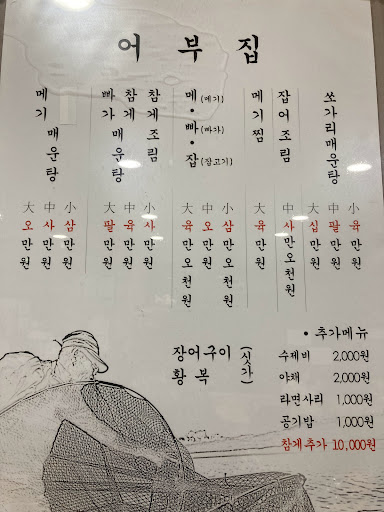 어 부 집
메기 매운탕
大 오만원
中 사만원
小 삼만원
빠가 참게 매운탕
참게조림
大 팔만원
中 육만원
小 사만원
메(메기)·빠(빠가)·잡(잡고기)
大 육만오천원
中 오만원
小 삼만오천원
메기찜
잡어조림
大 육만원
中 사만오천원
쏘가리매운탕
大 십만원
中 팔만원
小 육만원
장어구이 (싯가)
황 복
• 추가메뉴
수제비 2,000원
야채 2,000원
라면사리 1,000원
공기밥 1,000원
참게추가 10,000원